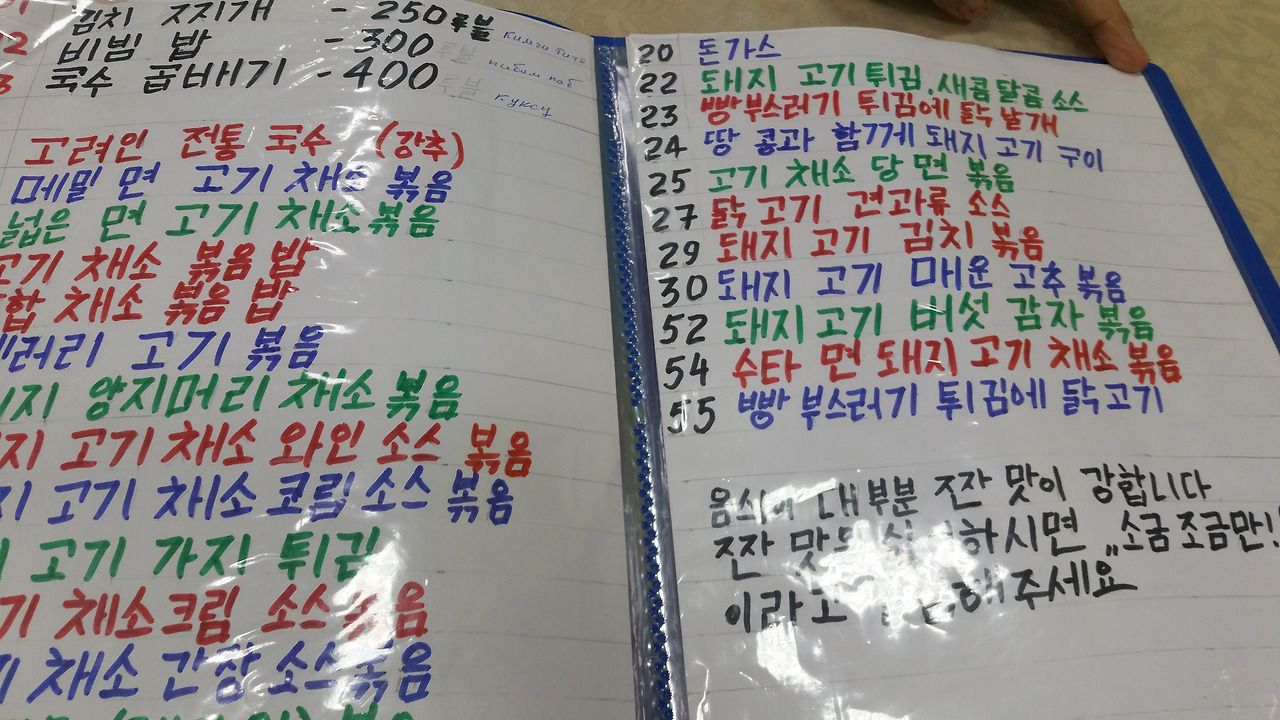 김치 찌개 - 250 루블 кимчи тиге
2 비빔 밥 - 300 루블 пибим паб
3 국수 곱배기 - 400 루블 куксу
고려인 전통 국수 (강추)
메밀 면 고기 채소 볶음
넓은 면 고기 채소 볶음
고기 채소 볶음 밥
채소 볶음 밥
러리 고기 볶음
지 양지머리 채소 볶음
지 고기 채소 와인 소스 볶음
지 고기 채소 크림 소스 볶음
고기 가지 튀김
기 채소 크림 소스 볶음
채소 간장 소스 볶음
20 돈가스
22 돼지 고기 튀김, 새콤달콤 소스
23 빵부스러기 튀김에 닭 날개
24 땅 콩과 함께 돼지 고기 구이
25 고기 채소 당면 볶음
27 닭고기 견과류 소스
29 돼지 고기 김치 볶음
30 돼지 고기 매운 고추 볶음
52 돼지고기 버섯 감자 볶음
54 수타 면 돼지 고기 채소 볶음
55 빵 부스러기 튀김에 닭고기
음식이 대부분 짠 맛이 강합니다
짠 맛 하시면 „소금조금만!
이라고 해주세요